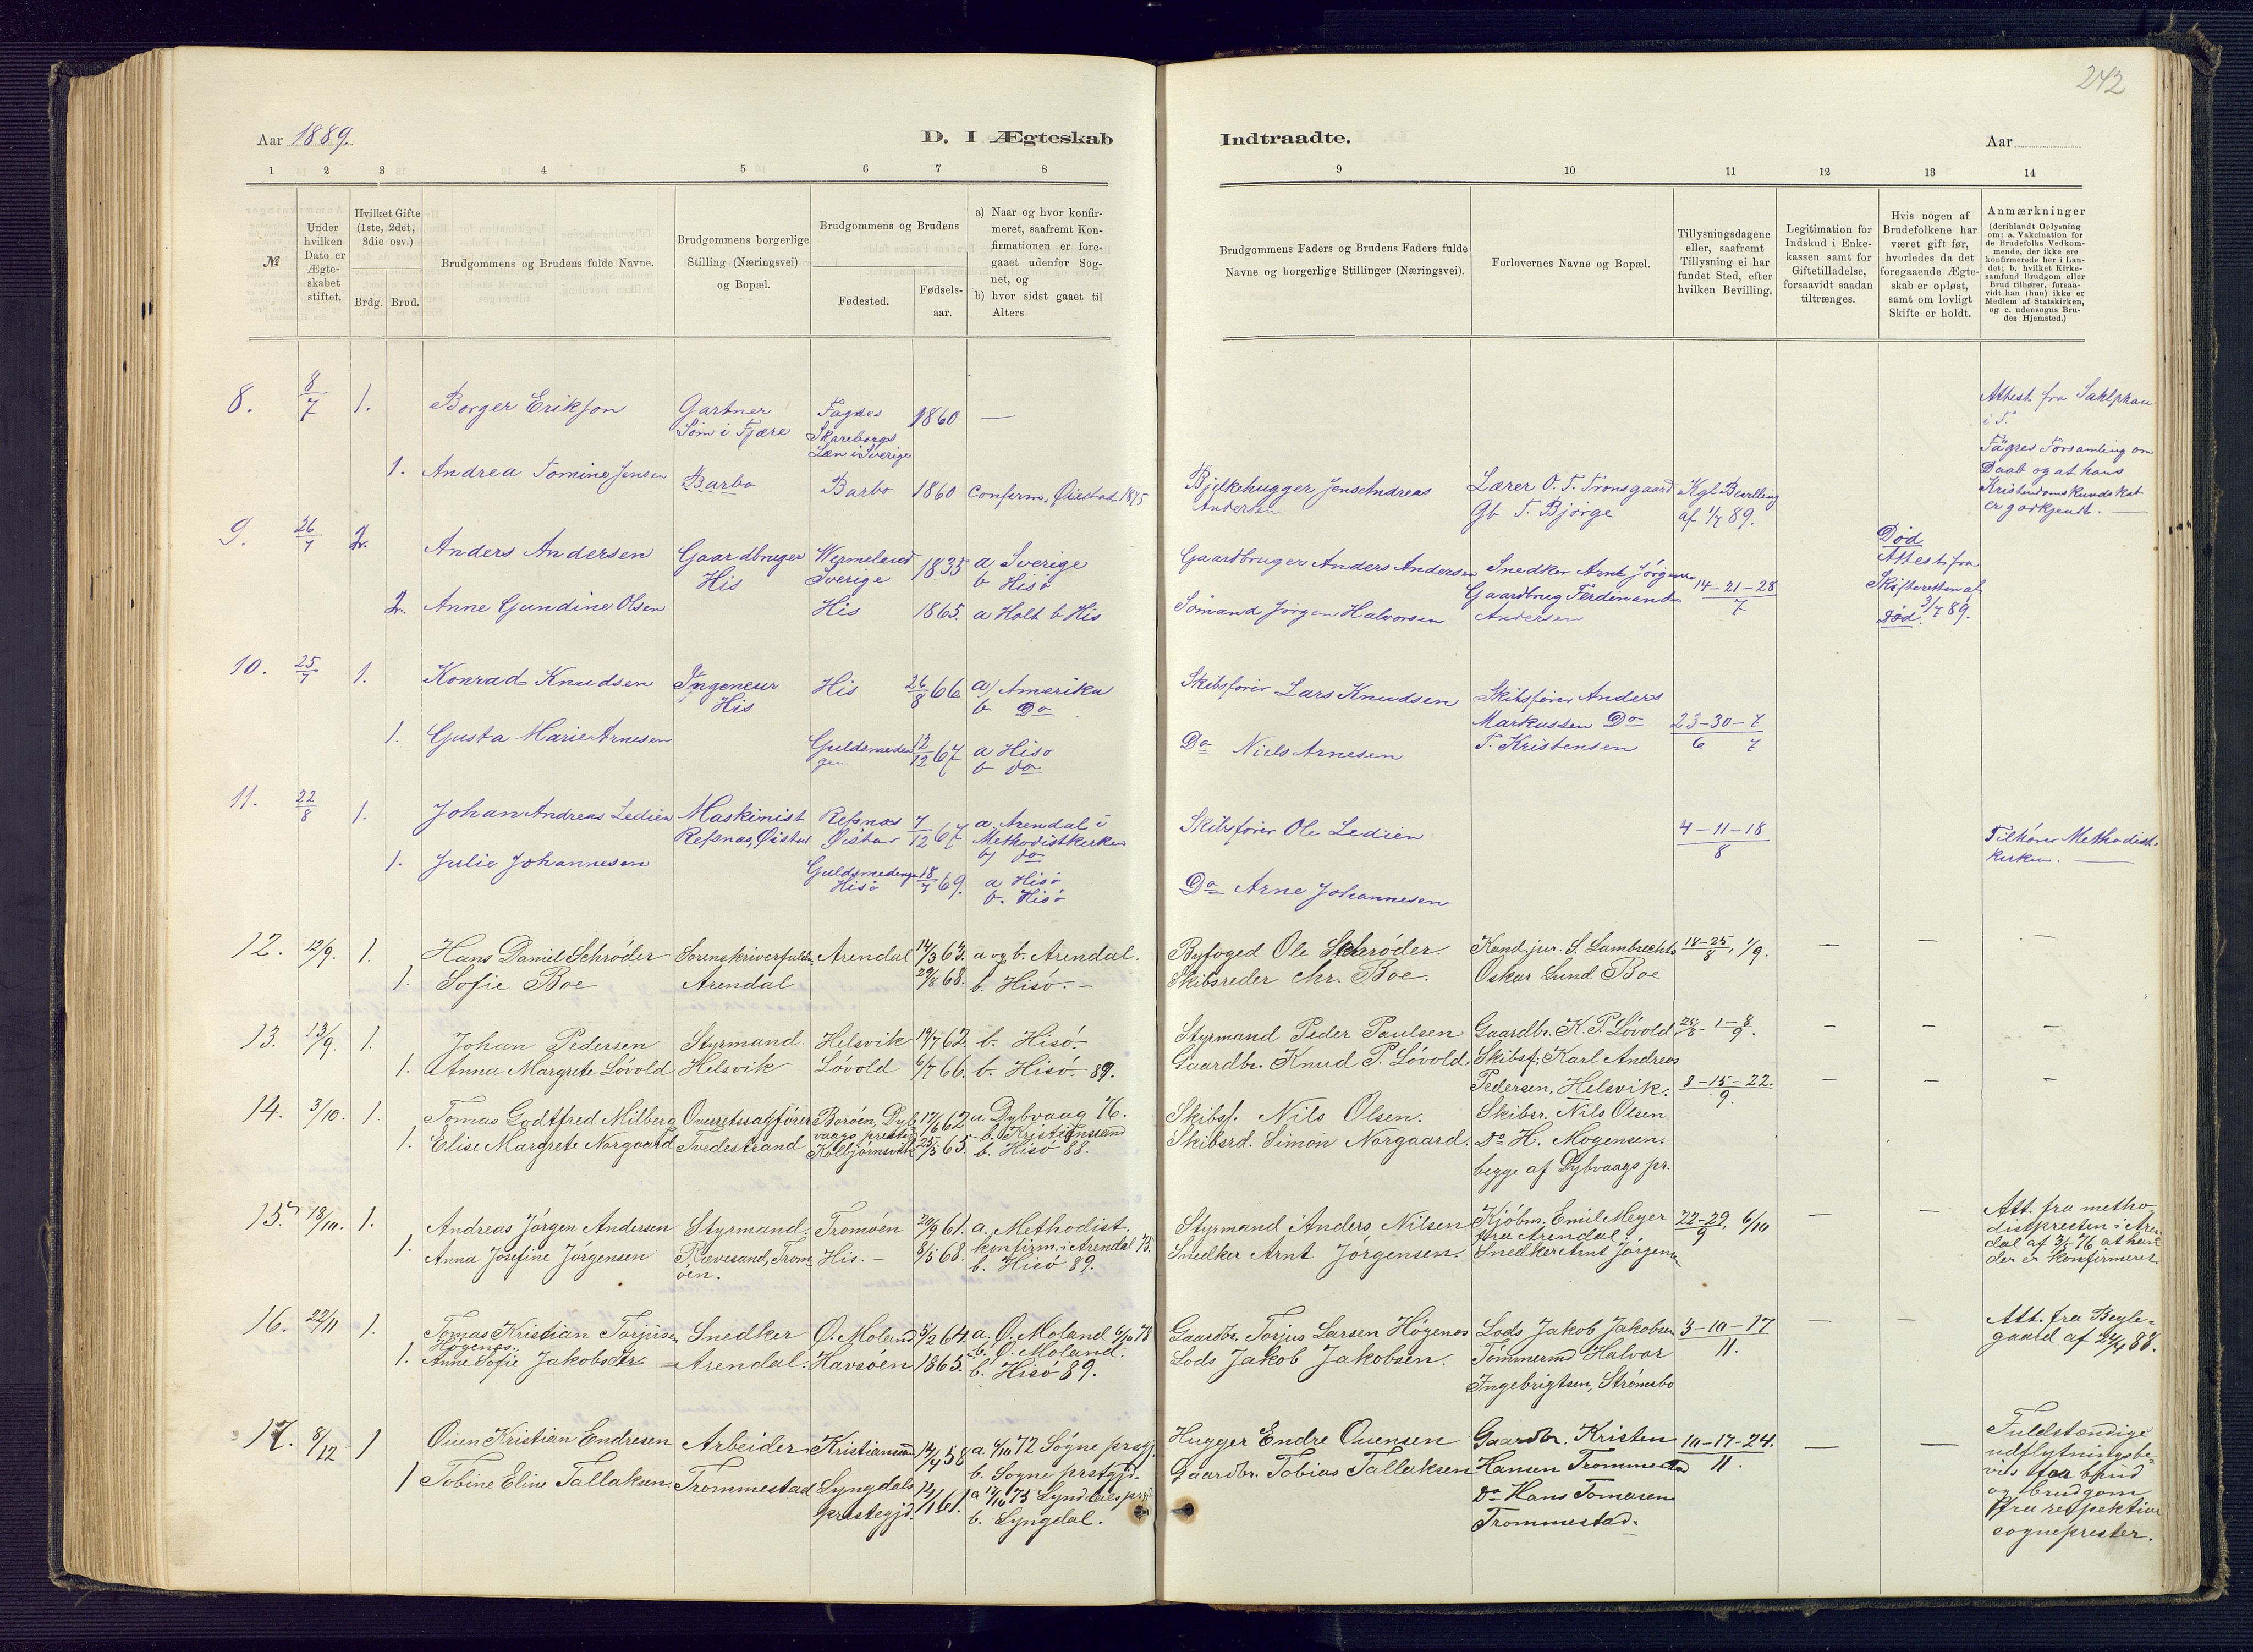 242
Aar 1889.
D. I Ægteskab
Indtraadte.
Aar
1 2 3 4 5 6 7 8 9 10 11 12 13 14
№
Under hvilken Dato er Ægte-skabet stiftet.
Hvilket Gifte (1ste, 2det, 3die osv.)
Brdg. Brud.
Brudgommens og Brudens fulde Navne.
Brudgommens borgerlige Stilling (Næringsvei) og Bopæl.
Brudgommens og Brudens
Fødested.
Fødsels-aar.
a) Naar og hvor konfir-meret, saafremt Kon-firmationen er fore-gaaet udenfor Sog-net, og
b) hvor sidst gaaet til Alters.
Brudgommens Faders og Brudens Faders fulde Navne og borgerlige Stillinger (Næringsvei).
Forlovernes Navne og Bopæl.
Tillysningsdagene eller, saafremt Tillysning ei har fundet Sted, efter hvilken Bevilling.
Legitimation for Indskud i Enke-kassen samt for Giftetilladelse, forsaavidt saadan tiltrænges.
Hvis nogen af Brudefolkene har været gift før, hvorledes da det foregaaende Ægte-skab er opløst, samt om lovligt Skifte er holdt.
Anmærkninger (deriblandt Oplysning om: a. Vakcination for de Brudefolks Vedkom-mende, der ikke ere konfirmerede her i Lan-det; b. hvilket Kirke-samfund Brudgom eller Brud tilhører, forsaa-vidt han (hun) ikke er Medlem af Statskirken, og c. udensogns Bru-des Hjemsted.)
8. 8/7 1. Borger Erikson Gartner Fagres 1860 —
Søm i Fjære Skareborgs Læn i Sverige
1. Andrea Tomine Jensen Barbo Barbo 1860 Confirm. Øiestad 1875
Bjelkehugger Jens Andreas Andersen
Lærer O. T. Tronsgaard
Gb T. Bjorge
Kgl Bevilling af 1/7 89.
Attest fra
i T.
Fägres Forsamling om
Daab og at hans
Kristendomskundskab
er godkjendt. —
9. 26/7 2. Anders Andersen Gaardbruger Wermeland 1835 a Sverige
His Sverige b Hisö
2. Anne Gundine Olsen His 1865. a Holt b His
Gaardbruger Anders Andersen
Sömand Jørgen Halvorsen
Snedker Arnt Jørgensen
Gaardbrug Ferdinand
Andersen
14-21-28/7
Død
Attest fra
Skifteretten af
3/7 89.
Død
10. 25/7 1. Konrad Knudsen Ingeneur His 26/8 66 a) Amerika
His b Do
1. Gusta Marie Arnesen Guldsmeden 12/12 67 a Hisö
gen b do
Skibsfører Lars Knudsen
Do Niels Arnesen
Skibsfører Anders
Markussen Do
T. Kristensen
23-30-7
6 7
11. 22/8 1. Johan Andreas Ledien Maskinist Refsnæs 7/12 67 a, Arendal i
Refsnæs, Øistad Øistad Methodistkirken
b) do
1. Julie Johannesen Guldsmedengen 18/7 69. a Hisö
Hisö b. Hisö
Skibsfører Ole Ledien
Do Arne Johannesen
4-11-18
8
Tilhører Methodist-
kirken. —
12. 12/9. 1. Hans Daniel Schröder Sorenskriverfuldm. Arendal 14/3 63. a og b. Arendal.
1. Sofie Boe Arendal 29/8 68. b. Hisö. -
Byfoged Ole Schröder.
Skibsreder Chr. Boe.
Kand. jur. S. Lambrechts
Oskar Lund Boe
18-25/8, 1/9.
13. 13/9. 1. Johan Pedersen Styrmand. Helsvik 19/7 62. b. Hisö.
1. Anna Margrete Lövold Helsvik Lövold 6/7 66. b. Hisö - 89.
Styrmand Peder Paulsen
Gaardbr. Knud P. Lövold.
Gaardbr. K. P. Lövold
Skibsf. Karl Andreas
Pedersen, Helsvik.
25/8 - 1-8/9.
14. 3/10. 1. Tomas Godtfred Milberg Overretssagfører Boröen, Dyb 17/6 62 a Dybvaag 76.
vaags prestg. b. Kristianssand
1. Elise Margrete Norgaard Tvedestrand Kolbjörnsvik 25/5 65. b. Hisö 88.
Skibsf. Nils Olsen.
Skibsrd. Simon Norgaard.
Skibsr. Nils Olsen
Do H. Mogensen.
begge af Dybvaags pr.
8-15-22.
9.
15. 18/10. 1. Andreas Jörgen Andersen Styrmand. Tromöen 20/9 61. a. Methodist.
1. Anna Josefine Jörgensen Revesand, Trom- His. - 8/5 68. konfirm. i Arendal 75.
öen. b. Hisö 89.
Styrmand Anders Nilsen
Snedker Arnt Jörgensen.
Kjöbm. Emil Meyer
fra Arendal.
Snedker Arnt Jörgensen
22-29, 6/10
9
Att. fra metho-
distpresten i Aren
dal af 3/5 76 at han
der er konfirmeret.
16. 22/11 1. Tomas Kristian Torjusen Snedker Ø. Moland 5/2 64. a. Ø. Moland 6/10 78
Högenes. b. Ø. Moland.
1. Anne Sofie Jakobsdtr. Arendal. Havsöen 1865. b. Hisö 89.
Gaardbr. Torjus Larsen Högenes
Lods Jakob Jakobsen.
Lods Jakob Jakobsen
Tömmermd Halvor
Ingebrigtsen, Strömsbo
3-10-17
11.
Att. fra Beyle-
gaard af 24/4 88.
17. 8/12 1 Ouen Kristian Endresen Arbeider Kristianssand 14/4 58 a. 4/10 72 Sögne prstgj.
b. Sogne prstgjd.
1 Tobine Eline Tallaksen. Trommestad Lyngdals 14/1 61. a 12/10 75 Lyngdals prgj.
prestegjd. b. Lyngdal.
Hugger Endre Ouensen
Gaardbr. Tobias Tallaksen
Gaardbr. Kristen
Hansen Trommestad
Do Hans Tomasen
Trommestad.
10-17-24.
11.
Fuldstændige
udflytningsbe-
vis for brud
og brudgom
fra respektive
sogneprester.